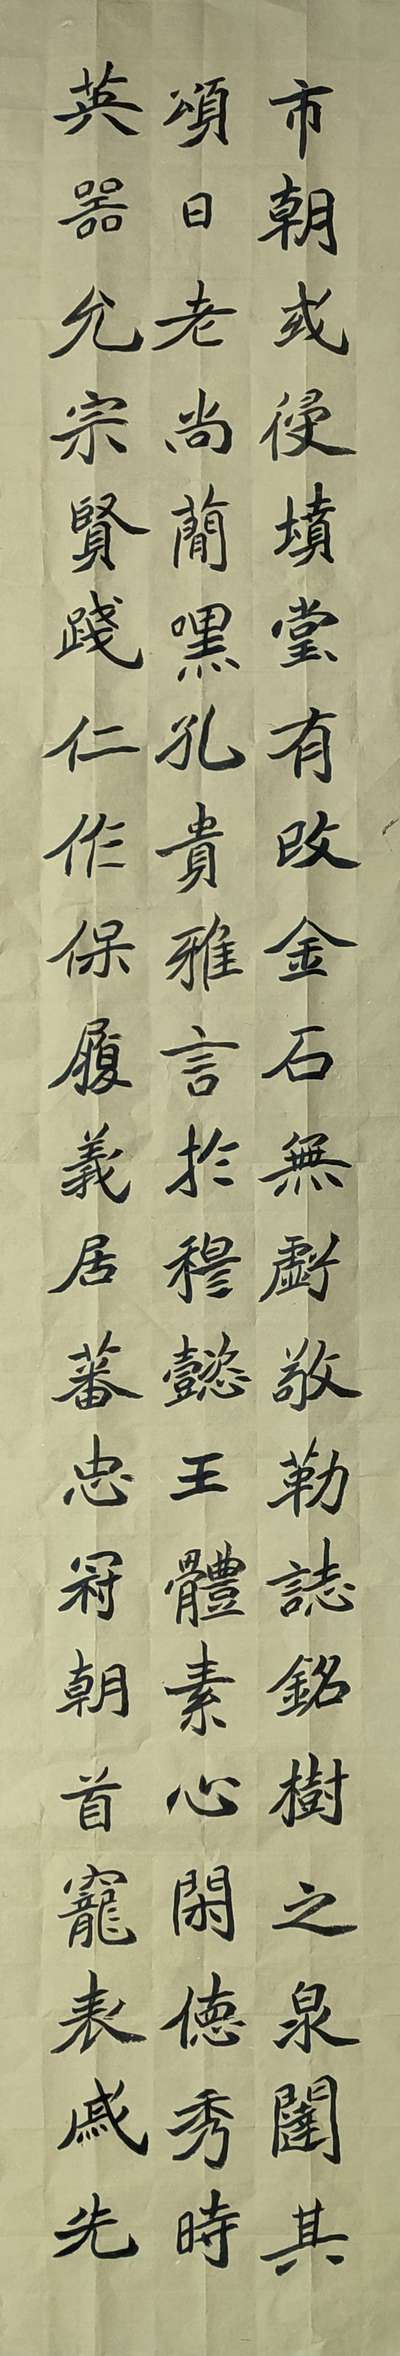 市朝或侵墳堂有改金石無虧敬勒誌銘樹之泉闥其
頌曰老尚簡嘿孔貴雅言於穆懿王體素心閑德秀時
英器允宗賢踐仁作保履義居蕃忠冠朝首寵表戚先